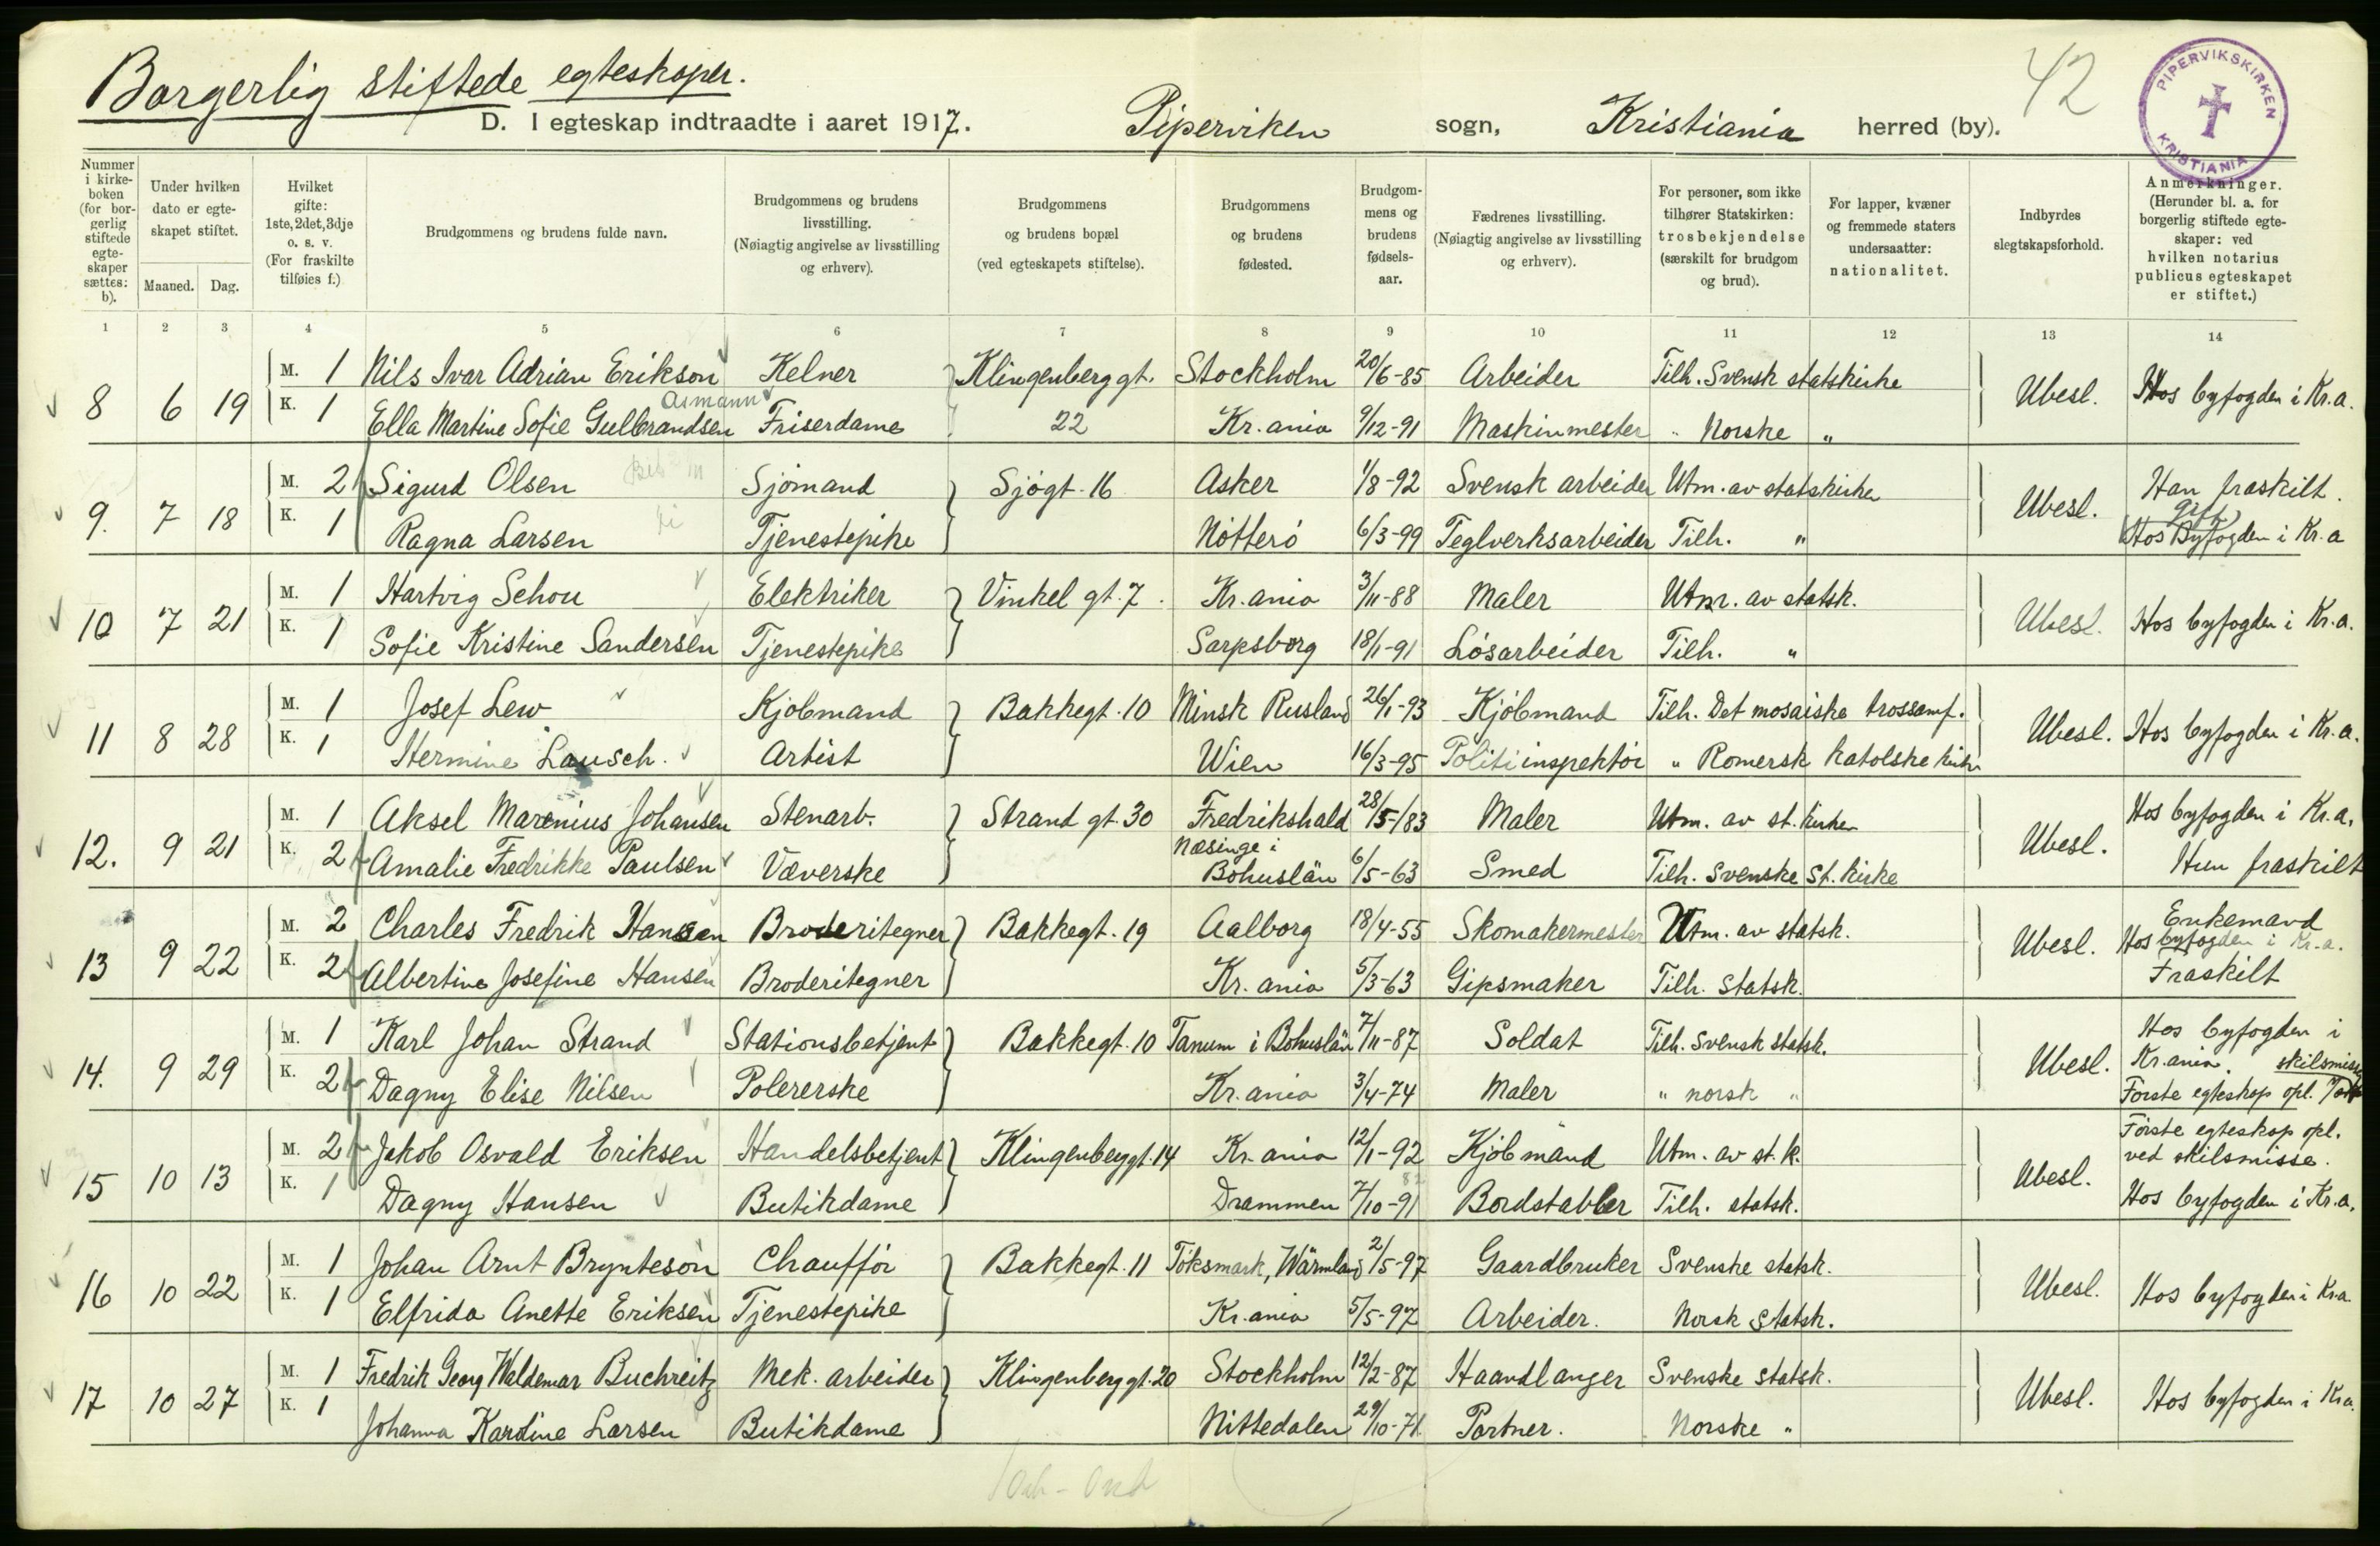 Borgerlig stiftede egteskaper.
42
PIPERVIKSKIRKEN KRISTIANIA
D. I egteskap indtraadte i aaret 1917. Piperviken sogn, Kristiania herred (by).
Nummer i kirkeboken (for borgerlig stiftede egteskaper sættes: b).
Under hvilken dato er egteskapet stiftet.
Maaned. Dag.
Hvilket gifte: 1ste, 2det, 3dje o. s. v. (For fraskilte tilføies f.)
Brudgommens og brudens fulde navn.
Brudgommens og brudens livsstilling. (Nøiagtig angivelse av livsstilling og erhverv).
Brudgommens og brudens bopæl (ved egteskapets stiftelse).
Brudgommens og brudens fødested.
Brudgommens og brudens fødselsaar.
Fædrenes livsstilling. (Nøiagtig angivelse av livsstilling og erhverv).
For personer, som ikke tilhører Statskirken: trosbekjendelse (særskilt for brudgom og brud).
For lapper, kvæner og fremmede staters undersaatter: nationalitet.
Indbyrdes slegtskapsforhold.
Anmerkninger. (Herunder bl. a. for borgerlig stiftede egteskaper: ved hvilken notarius publicus egteskapet er stiftet.)
1 2 3 4 5 6 7 8 9 10 11 12 13 14
8 6 19 M. 1 Nils Ivar Adrian Erikson Kelner Klingenberg gt. Stockholm 20/6-85 Arbeider Tilh. Svensk statskirke Ubesl. Hos byfogden i Kr.a.
K. 1 Ella Martine Sofie Gulbrandsen Friserdame 22 Kr.ania 9/12-91 Maskinmester " Norske "
9. 7 18 M. 2 f Sigurd Olsen Sjömand Sjögt. 16 Asker 1/8-92 Svensk arbeider Utm. av statskirken Ubesl. Han fraskilt.
K. 1 Ragna Larsen Tjenestepike Nötterö 6/3-99 Teglverksarbeider Tilh. " gift Hos Byfogden i Kr.a
10 7 21 M. 1 Hartvig Schou Elektriker Vinkel gt. 7. Kr.ania 3/11-88 Maler Utm. av statsk. Ubesl. Hos byfogden i Kr.a.
K. 1 Sofie Kristine Sandersen Tjenestepike Sarpsborg 18/1-91 Lösarbeider Tilh. "
11 8 28 M. 1 Josef Lew Kjöbmand Bakkegt. 10 Minsk Rusland 26/1-93 Kjöbmand Tilh. Det mosaiske trossamf. Ubesl. Hos byfogden i Kr.a.
K. 1 Hermine Lausch. Artist Wien 16/3-95 Politiinspektör " Romersk katolske kirke
12. 9 21 M. 1 Aksel Marenius Johansen Stenarb. Strand gt. 30 Fredrikshald 28/5-83 Maler Utm. av st. kirken Ubesl. Hos byfogden i Kr.a.
K. 2 f Amalie Fredrikke Paulsen Væverske Næsinge i Bohuslän 6/5-63 Smed Tilh. Svenske St. kirke Hun fraskilt
13 9 22 M. 2 Charles Fredrik Hansen Broderitegner Bakkegt. 19 Aalborg 18/4-55 Skomakermester Utm. av statsk. Ubesl. Enkemand
Hos byfogden i Kr.a.
K. 2 f Albertine Josefine Hansen Broderitegner Kr.ania 5/3-63 Gipsmaker Tilh. Statsk. Fraskilt
14. 9 29 M. 1 Karl Johan Strand Stationsbetjent Bakkegt. 10 Tanum i Bohuslän 7/11-87 Soldat Tilh. Svensk statsk. Ubesl. Hos byfogden i
Kr.ania. skilsmisse
K. 2 f Dagny Elise Nilsen Polererske Kr.ania 3/4-74 Maler " norsk " Förste egteskap opl.
15 10 13 M. 2 f Jakob Osvald Eriksen Handelsbetjent Klingenberggt. 14 Kr.ania 12/1-92 Kjöbmand Utm. av st. k. Ubesl. Förste egteskap opl. ved skilsmisse.
K. 1 Dagny Hansen Butikdame Drammen 7/10-91 Bordstabler Tilh. statsk. Hos byfogden i Kr.a.
16 10 22 M. 1 Johan Arnt Brynteson Chaufför Bakkegt. 11 Töksmark, Wärmland 2/5-97 Gaardbruker Svenske statsk. Ubesl. Hos byfogden i Kra.
K. 1 Elfrida Anette Eriksen Tjenestepike Kr.ania 5/5-97 Arbeider. Norsk Statsk.
17 10 27 M. 1 Fredrik Georg Waldemar Buchreitz Mek. arbeider Klingenberg gt. 20 Stockholm 12/2-87 Haandlanger Svenske Statsk. Ubesl. Hos byfogden i Kra.
K. 1 Johanna Kardine Larsen Butikdame Nittedalen 29/10-71 Portner. Norske "